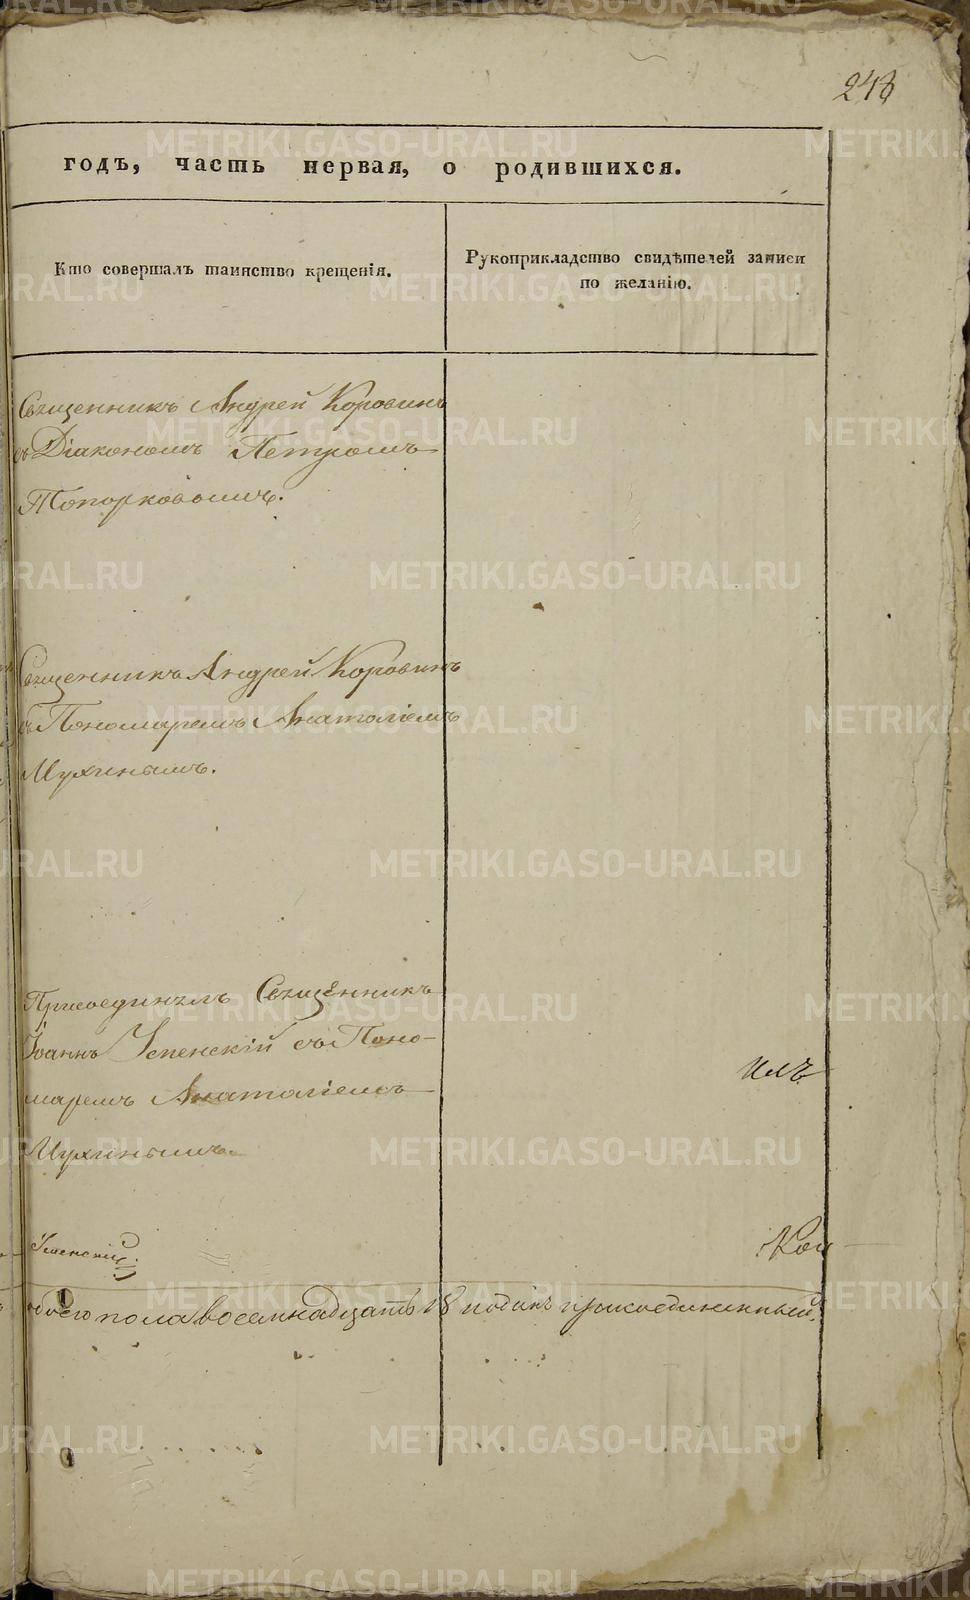 248
годъ, часть первая, о родившихся.
Кто совершалъ таинство крещенія.
Рукоприкладство свидѣтелей записи
по желанію.
Священникъ Андрей Коровинъ
съ Діакономъ Петромъ
Топорковымъ.
Священникъ Андрей Коровинъ
съ Пономаремъ Анатоліемъ
Мухинымъ.
Присоединилъ Священникъ
Іоаннъ Успенскій съ Поно-
маремъ Анатоліемъ
Мухинымъ.
Успенскій
обоего пола восемнадцать 18 и одинъ присоединенный.
METRIKI.GASO-URAL.RU